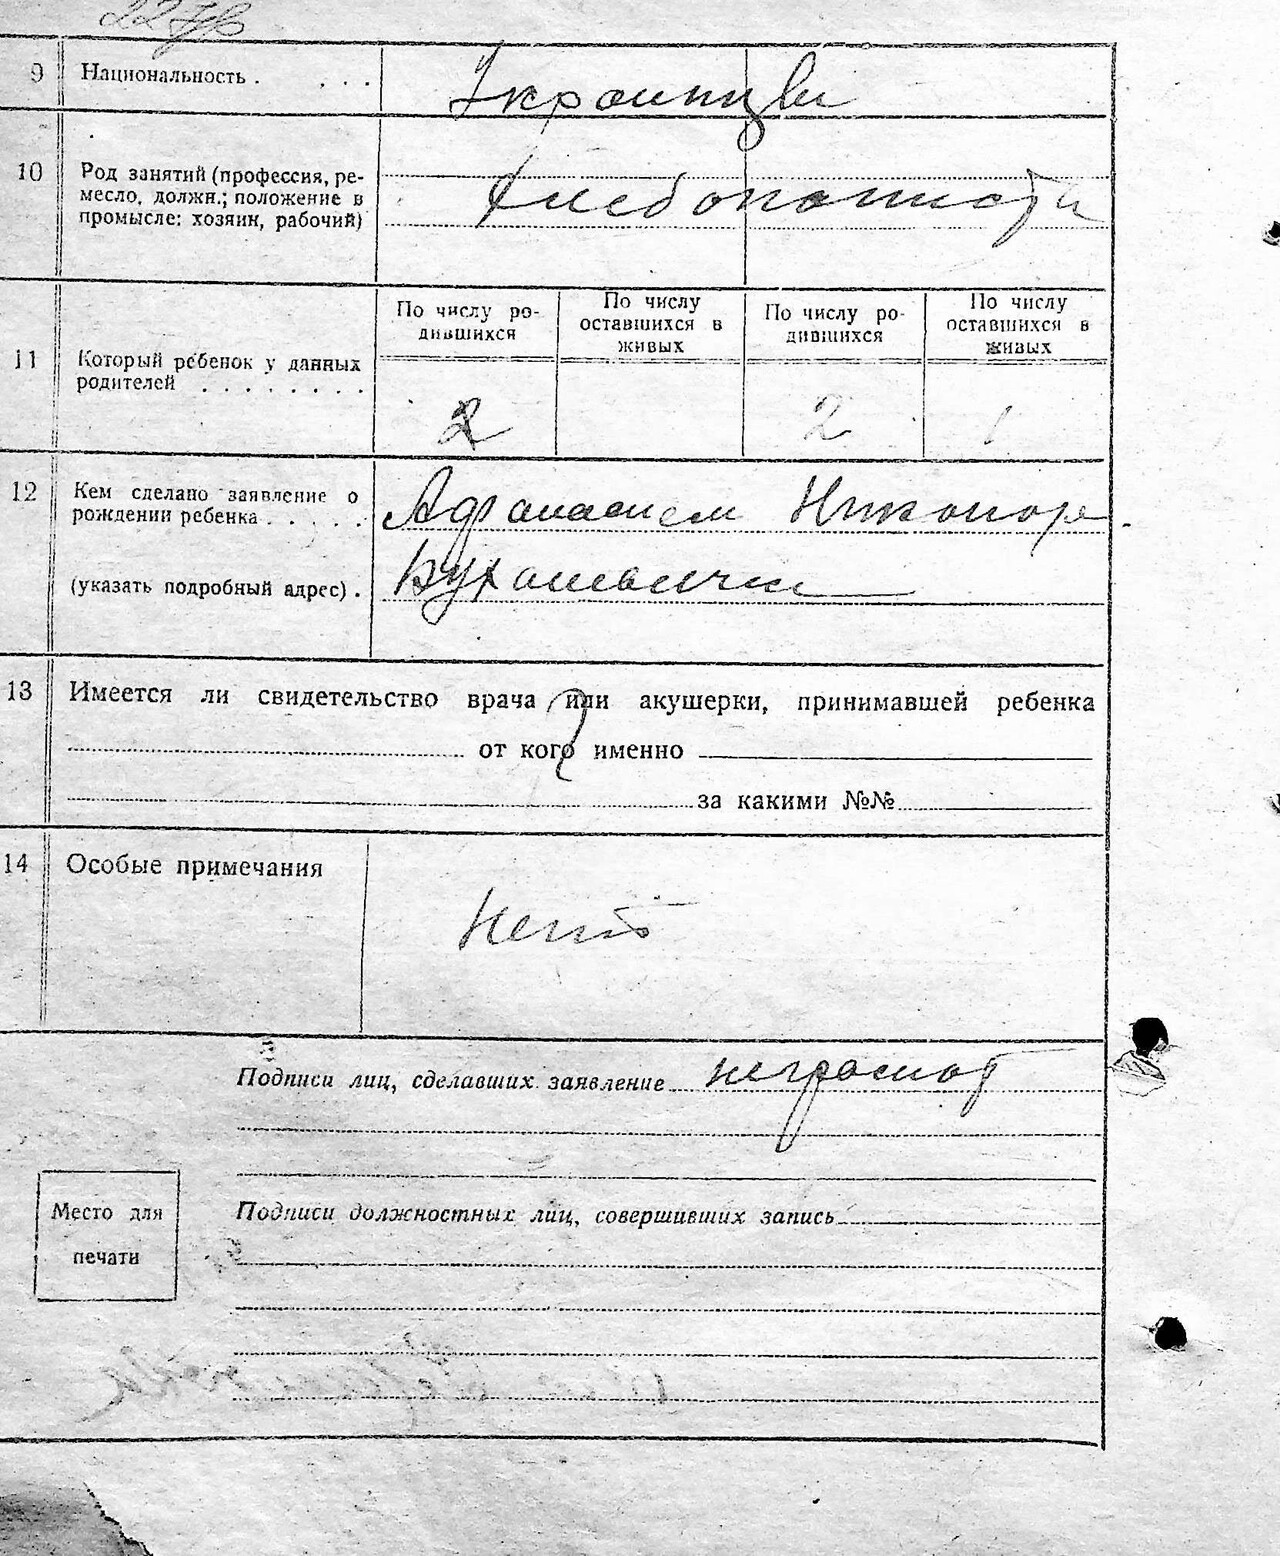 9 Национальность . . . . Украинцы
10 Род занятий (профессия, ре-
месло, должн.; положение в
промысле: хозяин, рабочий)
По числу ро-
дившихся
По числу
оставшихся в
живых
По числу ро-
дившихся
По числу
оставшихся в
живых
11 Который ребенок у данных
родителей . . . . . . . .
2 2 1
12 Кем сделано заявление о
рождении ребенка . . . . .
(указать подробный адрес) .
13 Имеется ли свидетельство врача или акушерки, принимавшей ребенка
от кого именно
за какими №№
14 Особые примечания
Нет
Подписи лиц, сделавших заявление неграмот
Подписи должностных лиц, совершивших запись
Место для
печати